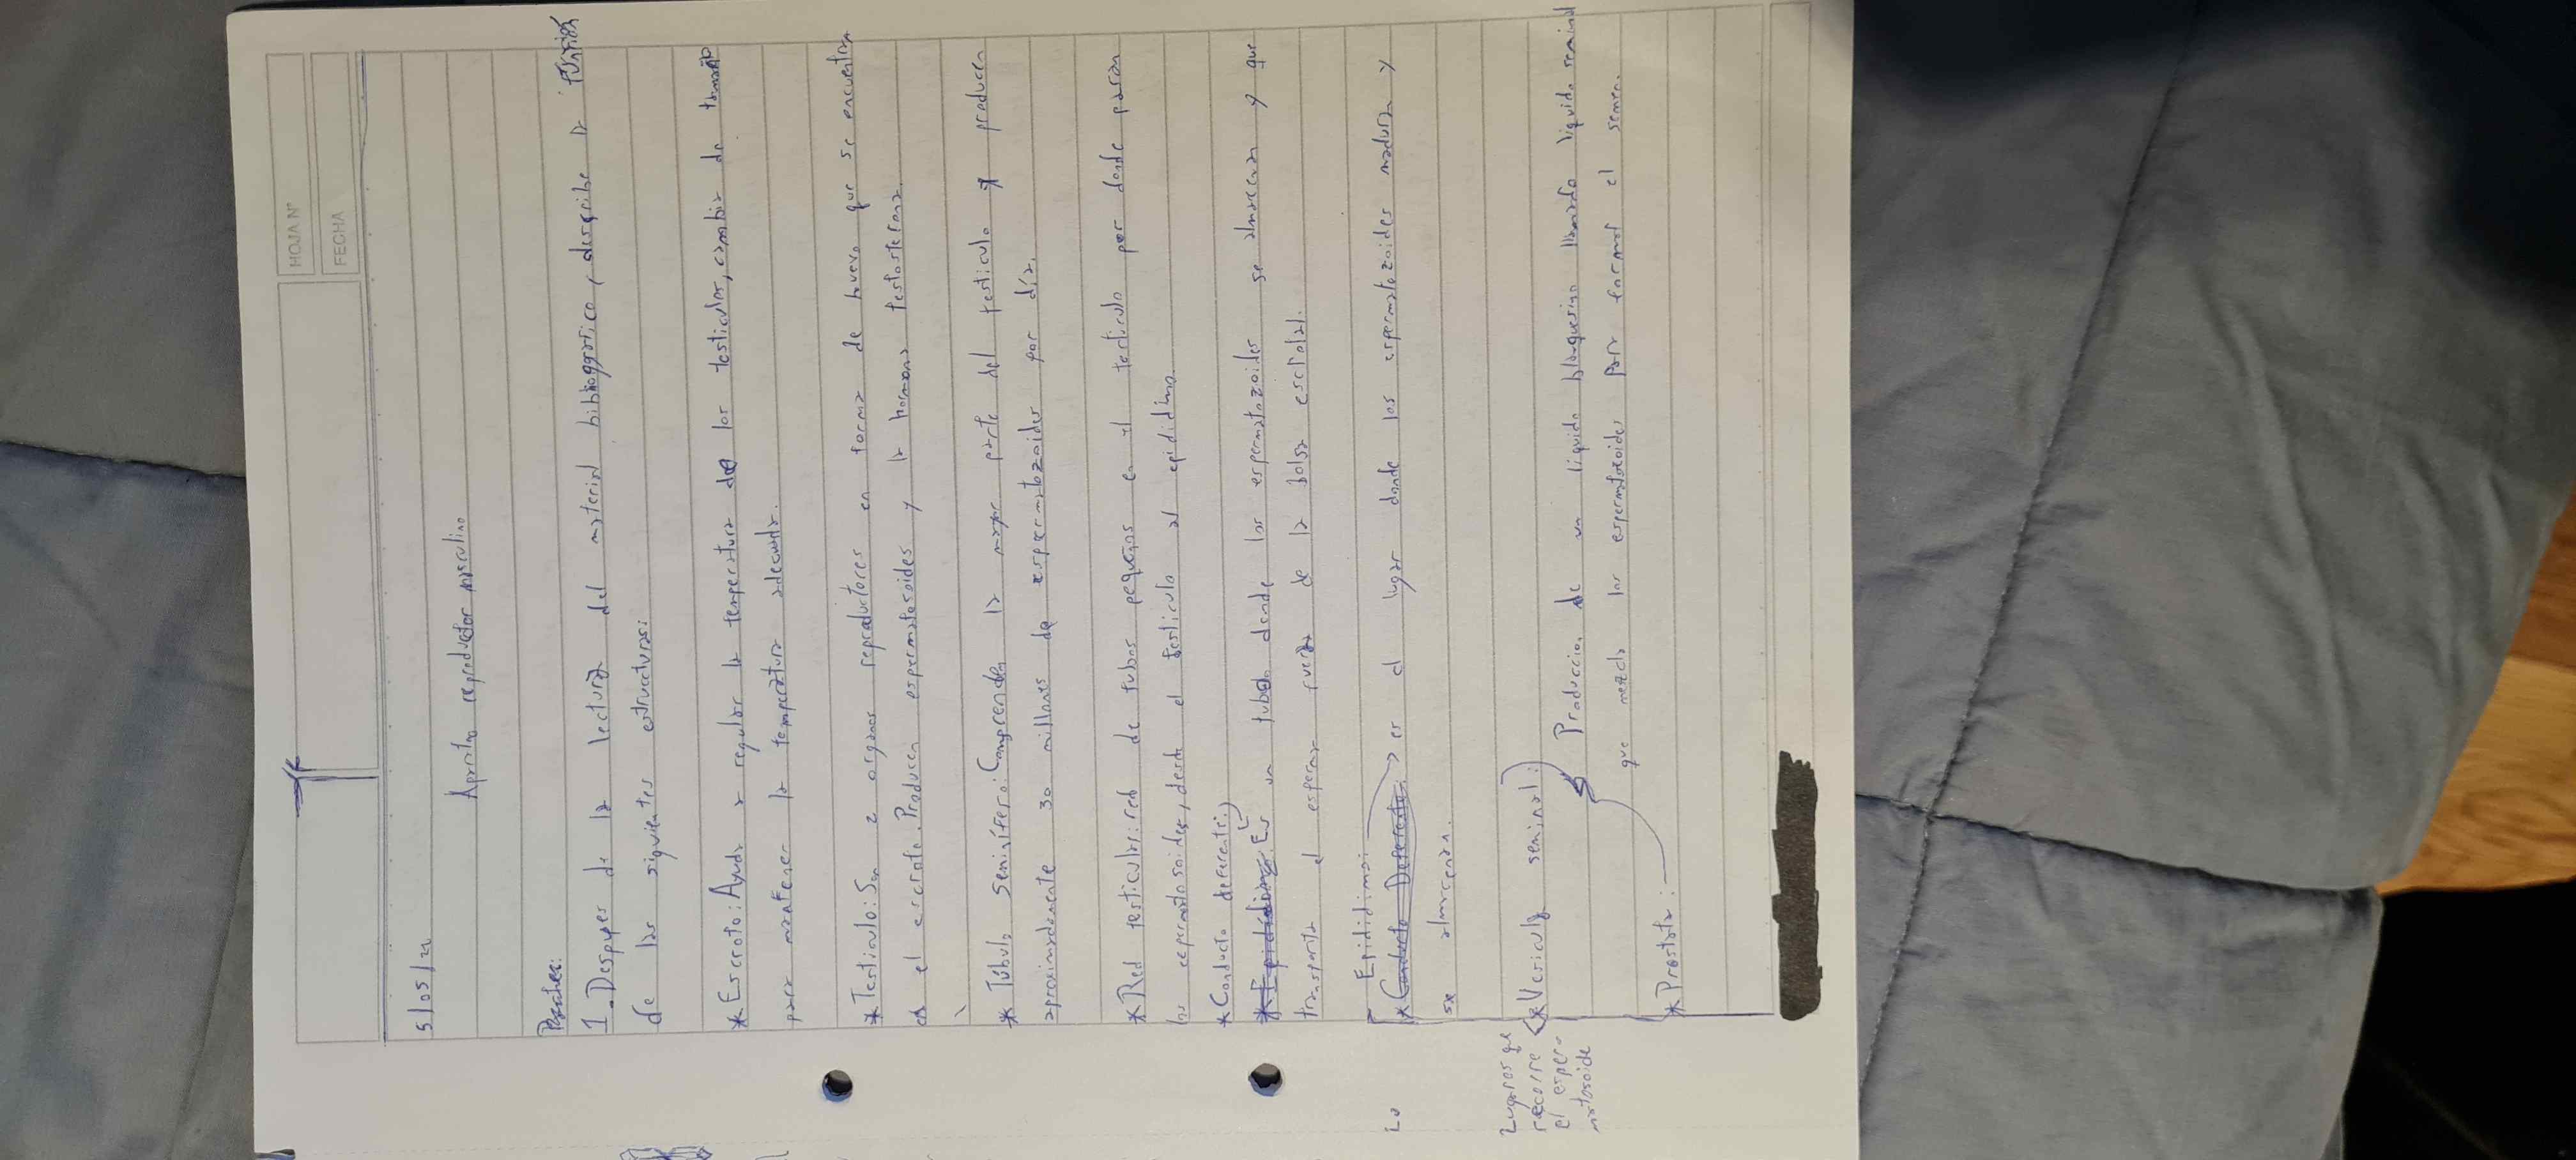 HOJA N°
FECHA
5/05/22
Aparato reproductor masculino
1. Despues de la lectura del material bibliografico, describe la función
de las siguientes estructuras:
* Escroto: Ayuda a regular la temperatura de los testiculos, cambia de tamaño
para mantener la temperatura adecuada.
* Testiculo: Son 2 organos reproductores en forma de huevo que se encuentran
en el escroto. Producen espermatosoides y la hormona testosterona.
* Túbulo seminífero: Comprenden la mayor parte del testiculo y producen
aproximadamente 30 millones de espermatozoides por día.
* Red testicular: red de tubos pequeños en el testiculo por donde pasan
los espermatosoides, desde el testiculo al epididimo.
* Conducto deferente:
* Epididimo: Es un tubo donde los espermatozoides se almacenan y que
transporta el esperma fuera de la bolsa escrotal.
Epididimo:
* Conducto Deferente: es el lugar donde los espermatozoides madura y
se almacenan.
Lugares que
recorre
el esper-
matosoide
* Vesicula seminal:
Produccion de un liquido blanquesino llamado liquido seminal
que mezcla los espermatozoides para formar el semen.
* Prostata: